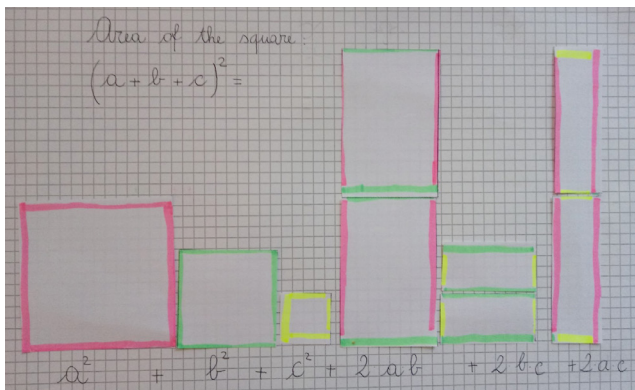 Area of the square:
(a + b + c)² =
a² + b² + c² + 2 ab + 2 b c + 2 a c